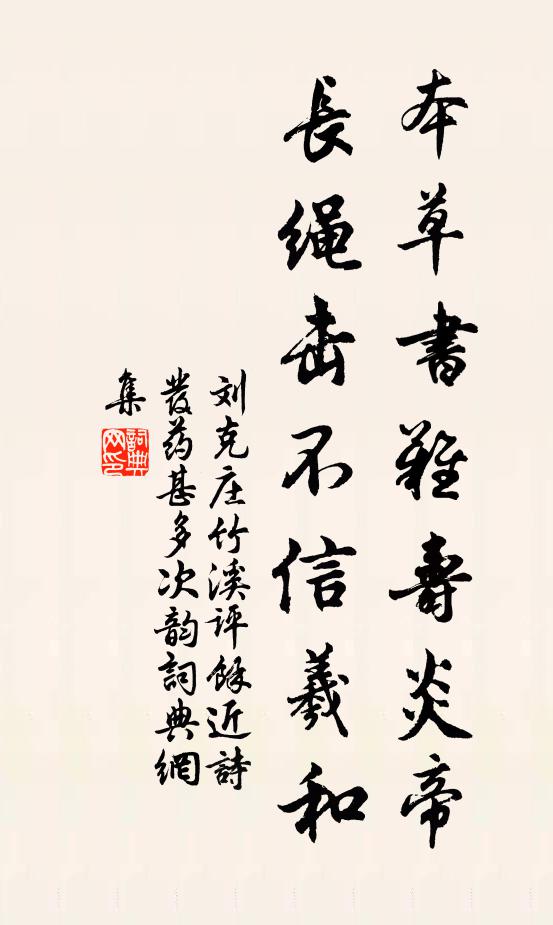 本草書難壽炎帝
長绳击不信羲和
刘克庄竹溪评馀近詩
發药甚多次韵詞典網
集
詞典网印